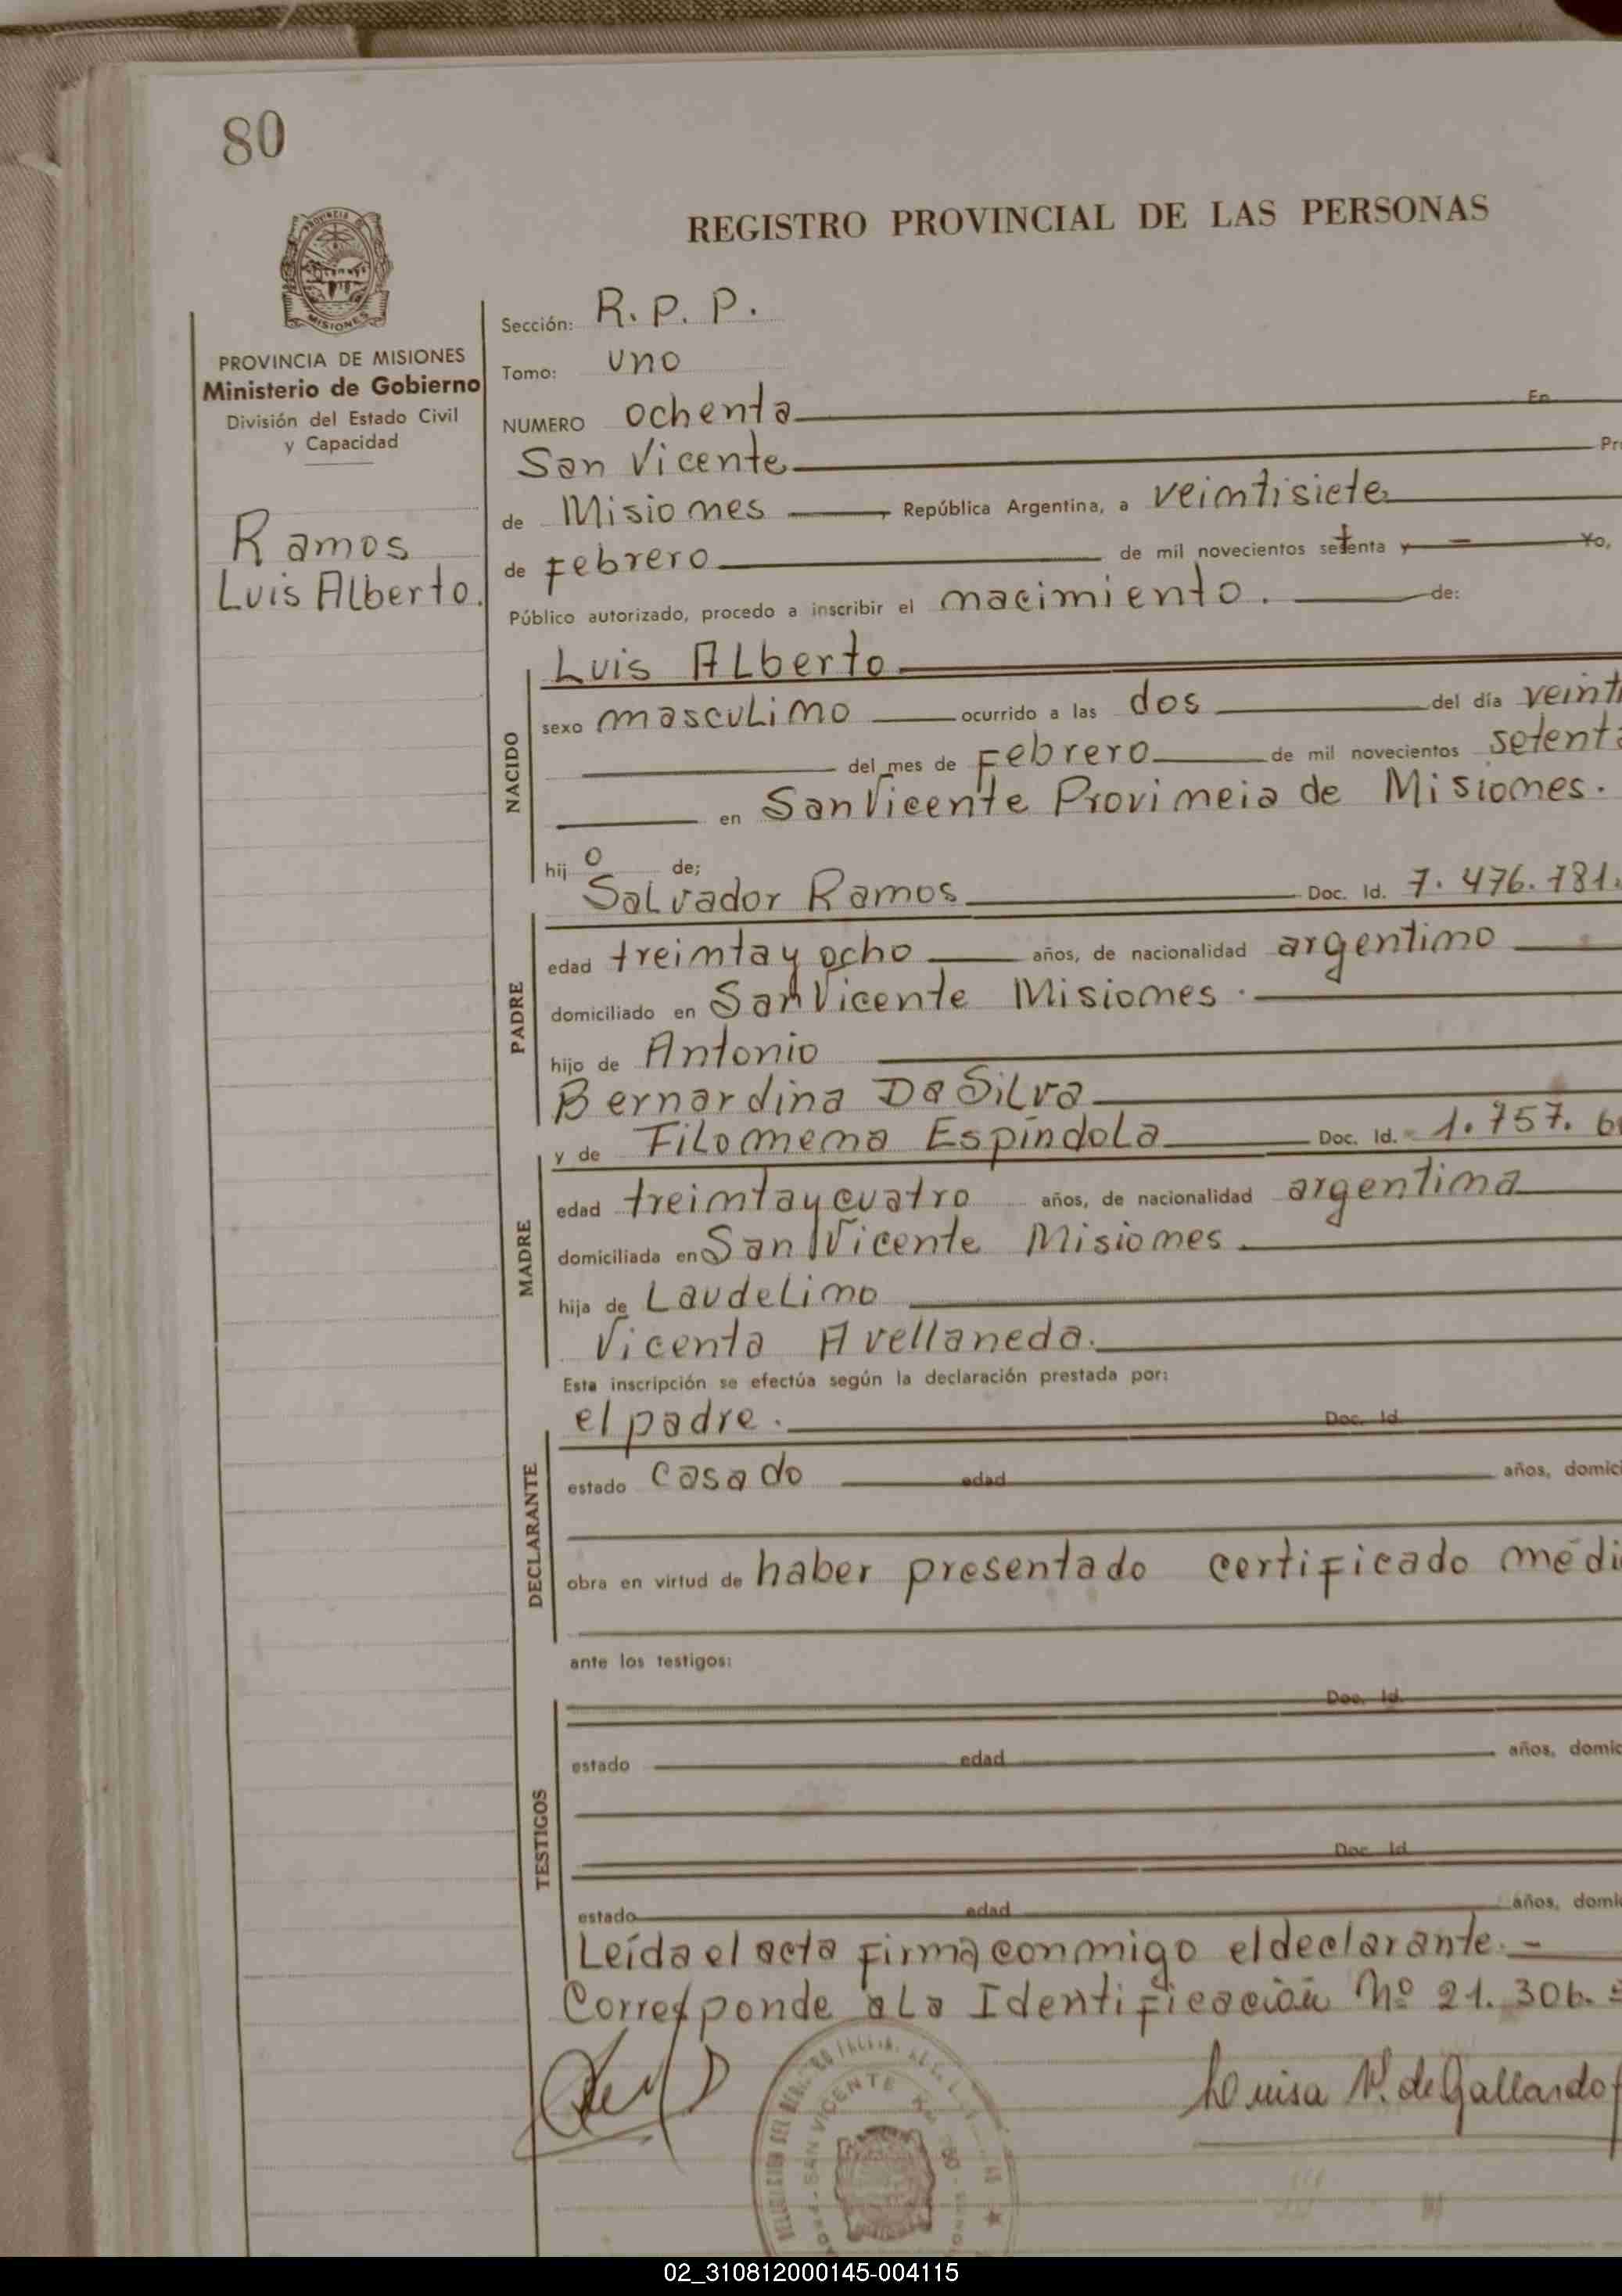 80
REGISTRO PROVINCIAL DE LAS PERSONAS
PROVINCIA
MISIONES
PROVINCIA DE MISIONES
Ministerio de Gobierno
División del Estado Civil
y Capacidad
Ramos
Luis Alberto.
Sección: R. P. P.
Tomo: uno
NUMERO ochenta En
San Vicente
de Misiones República Argentina, a veintisiete
de Febrero de mil novecientos setenta y Yo,
Público autorizado, procedo a inscribir el nacimiento. de:
NACIDO
Luis Alberto
sexo masculino ocurrido a las dos del día
del mes de Febrero de mil novecientos setenta
en San Vicente Provincia de Misiones.
hijo de;
PADRE
Salvador Ramos Doc. Id. 7.476.781.
edad treinta y ocho años, de nacionalidad argentino
domiciliado en San Vicente Misiones.
hijo de Antonio
Bernardina Da Silva
MADRE
y de Filomena Espíndola Doc. Id. 1.757.
edad treinta y cuatro años, de nacionalidad argentina
domiciliada en San Vicente Misiones
hija de Laudelino
Vicenta Avellaneda.
Esta inscripción se efectúa según la declaración prestada por:
DECLARANTE
el padre. Doc. Id.
estado casado edad años,
obra en virtud de haber presentado certificado
ante los testigos:
TESTIGOS
Doc. Id.
estado edad años,
Doc. Id.
estado edad años,
Leída el acta firma conmigo el declarante. -
Corresponde a La Identificación Nº 21.306.
Luisa V. de Gallardo
SAN VICENTE
02_310812000145-004115